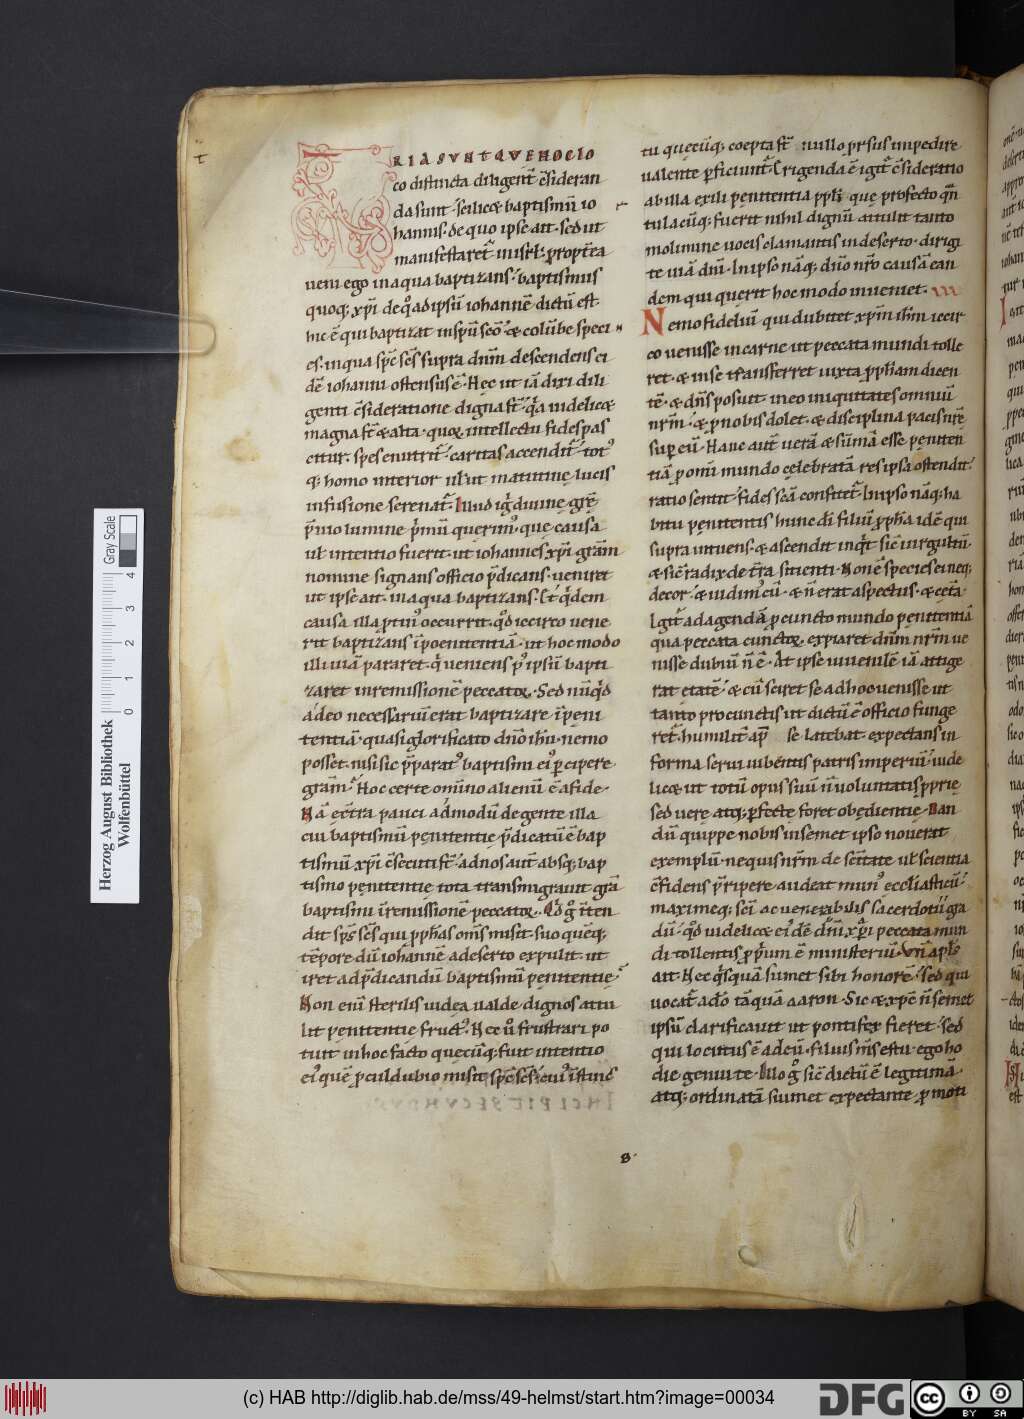 TRIA SVNT QVE HOC LO
co distincta diligent̄ c̄sideran
da sunt · scilicet baptismū io
hannis · de quo ipse ait · sed ut
manifestaretᷣ in isrl̄ · propt̄ea
veni ego in aqua baptizans · baptismus
quoq; xp̄i de q̊ ad ipsū iohannē dictū est
hic ē qui baptizat in sp̄ū sc̄o · & colūbe speci
es · in qua sp̄c sc̄s supra dn̄m descendens ei
dē iohanni ostensus ē · Hęc ut iā dixi dili
genti c̄sideratione digna st̄ · q̄a uidelicet
magna st̄ & alta · quoꝝ intellectu fides pas
citur · spes enutritᷣ · caritas accenditᷣ · tot᾽
q; homo interior ul̄ ut matutine lucis
infusione serenatᷣ · Illud igᷣ diuine grē
p̄uio lumine p̄mū querim᾽ · que causa
ul̄ intentio fuerit · ut iohannes xp̄i grām
nomine signans officio p̄dicans · ueniret
ut ipse ait · in aqua baptizans · Et q̄dem
causa illa ptin᾽ occurrit · q̊d iccirco uene
rit baptizans ī poenitentiā · ut hoc modo
illi uiā pararet · q̄ ueniens p᾽ ipsū bapti
zaret in remissionē peccatoꝝ · Sed nūq̊d
adeo necessariū erat baptizare ī peni
tentiā · quasi glorificato dn̄o ih̄u · nemo
posset · nisi sic p̄parat᾽ baptismi ei᾽ ꝑcipere
grām · Hoc certe om̄ino alienū ē a fide ·
Nā excᷓ pauci admodū de gente illa
cui baptismū pęnitentię p̄dicatū ē bap
tismū xp̄i c̄secuti st̄ · ad nos aut̄ absq; bap
tismo pęnitentię tota transmigrauit grā
baptismi ī remissionē peccatoꝝ · Q̊d g̊ īten
dit sp̄s sc̄s qui ꝓph̄as om̄s misit · suo quēq;
tēpore dū iohannē a deserto expulit · ut
iret ad p̄dicandū baptismū pęnitentię ·
Non eni sterilis iudea ualde dignos attu
lit pęnitentię fruct᾽ · Nec ū frustrari po
tuit in hoc facto quęcūq; fuit intentio
ei᾽ quē ꝓculdubio misit sp̄c sc̄s · cui᾽ īstinc
tu quęcūq; coepta st̄ nullo prsus impedire
ualente ꝑficiuntᷣ · Erigenda ē igitᷣ c̄sideratio
ab illa exili pęnitentia pph̄i · quę profecto qn̄
tulacūq; fuerit nihil dignū attulit tanto
molimine uocis clamantis in deserto · dirigi
te uiā dn̄i · In ipso nāq; dn̄o nr̄o causā ean
dem qui querit hoc modo inueniet ·
Nemo fideliū qui dubitet xp̄m ih̄m iccir
co uenisse in carne ut peccata mundi tolle
ret · & in se transferret iuxta ꝓph̄iam dicen
tē · & dn̄s posuit in eo iniquitates omniū
nr̄m · & ꝓ nobis dolet · & disciplina pacis nr̄ę
sup eū · Hanc aut̄ uerā & sūmā esse pęniten
tiā ꝓ om̄i mundo cęlebratā res ipsa ostendit ·
ratio sentit · fides sc̄a confitetᷣ · In ipso nāq; ha
bitu pęnitentis hunc d̄i filiū ꝓph̄a idē qui
supra intuens · & ascendit inq̄t sic̄ uirgultū ·
& sic̄ radix de t̄ra sitienti · Non ē species ei neq;
decor · & uidim᾽ cū · & n̄ erat aspectus · & cętᷓ ·
Igitᷣ ad agendā ꝓ cuncto mundo pęnitentiā
qua peccata cunctoꝝ expiaret dn̄m nr̄m ue
nisse dubiū n̄ ē · At ipse iuuenilē iā attige
rat etatē · & cū sciret se ad hoc uenisse ut
tanto pro cunctis ut dictū ē officio funge
ret · humilitᷣ ap̄ se latebat · expectans in
forma serui iubentis patris imperiū · uide
licet ut totū opus suū n̄ uoluntatis ꝓprię
sed uerę atq; ꝑfectę foret obędientię · Dan
dū quippe nobis in semet ipso nouerat
exemplū · nequis nr̄m de sc̄itate ul̄ scientia
c̄fidens p̄ripere audeat mun᾽ eccl̄iasticū ·
maximeq; sc̄i ac uenerabilis sacerdotii gra
dū · q̊d uidelicet ei᾽dē dn̄i xp̄i peccata mun
di tollentis ꝓpriū ē ministeriū · Vn̄ ap̄ls
ait · Nec q̄squā sumet sibi honorē · sed qui
uocatᷣ a do tāquā aaron · Sic & xp̄c n̄ semet
ipsū clarificauit ut pontifex fieret · sed
qui locutus ē ad eū · filius m̄s es tu · ego ho
die genui te · Illo g̊ sic̄ dictū ē legitimā
atq; ordinatā sumet expectante ꝓmoti
8 ·
Herzog August Bibliothek
Wolfenbüttel
0 1 2 3 4
Gray Scale
(c) HAB http://diglib.hab.de/mss/49-helmst/start.htm?image=00034
DFG
cc BY SA